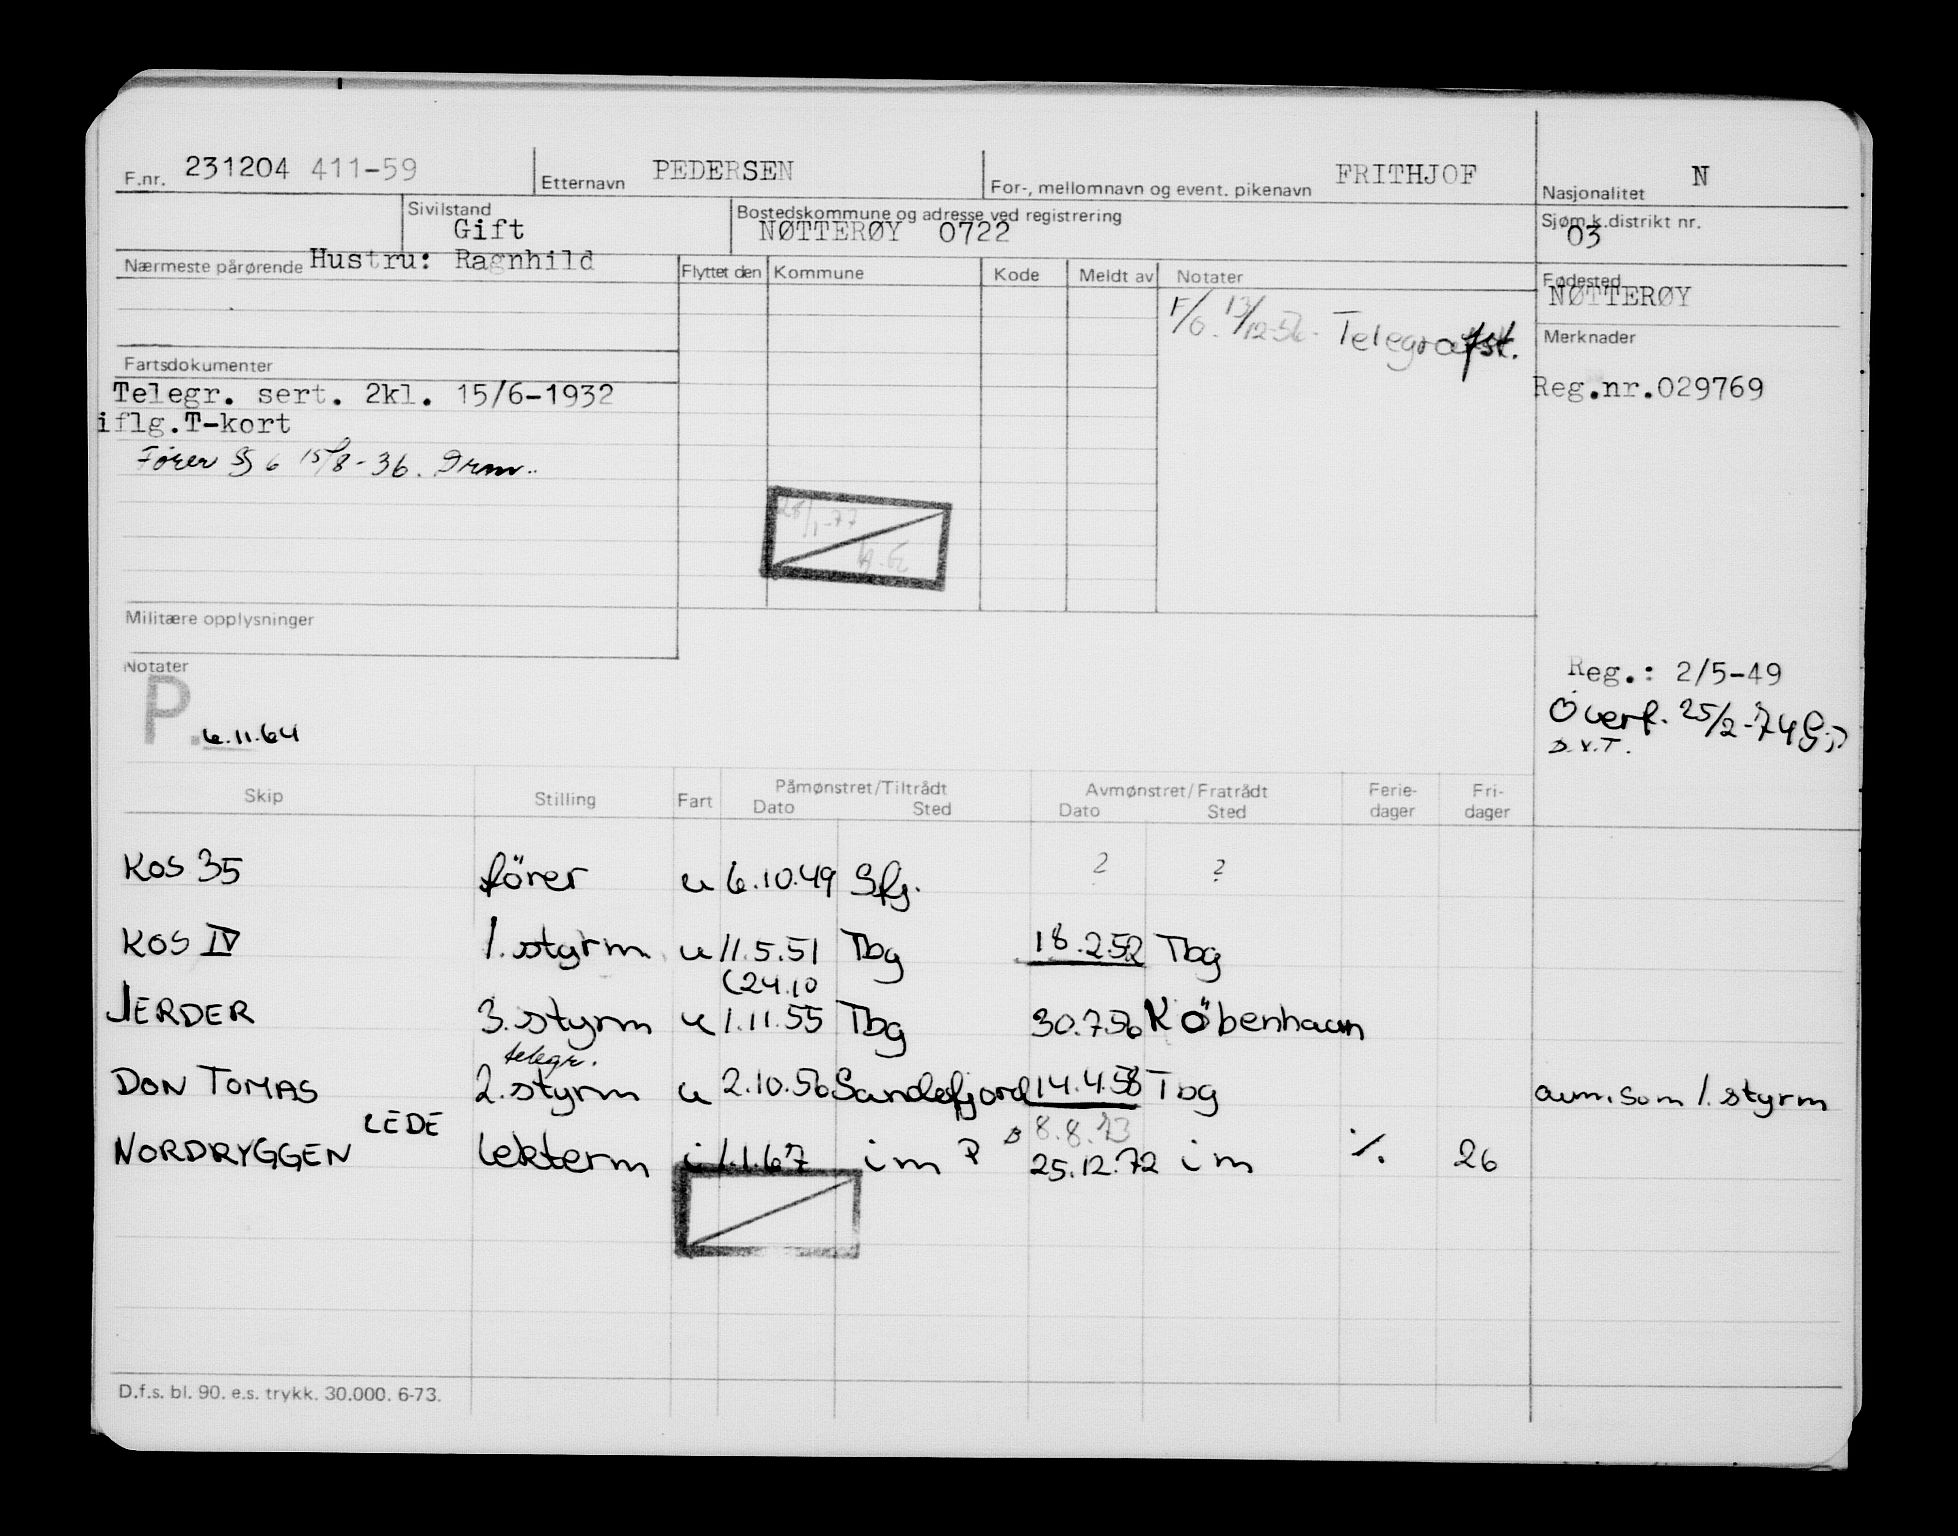 F.nr. 231204 411-59 Etternavn PEDERSEN For-, mellomnavn og event. pikenavn FRITHJOF Nasjonalitet N
Sivilstand Gift Bostedskommune og adresse ved registrering NØTTERØY 0722 Sjøm.k.distrikt nr. 03
Nærmeste pårørende Hustru: Ragnhild Flyttet den Kommune Kode Meldt av Notater Fødested NØTTERØY
F/G. 13/12-56. Telegrafst.
Merknader
Fartsdokumenter
Telegr. sert. 2kl. 15/6-1932 Reg.nr.029769
iflg.T-kort
Fører § 6 15/8-36. Drm..
25/1-77
Militære opplysninger
Notater
Reg.: 2/5-49
P. 6.11.64 Överf. 25/2-74
D.V.T.
Skip Stilling Fart Påmønstret/Tiltrådt Dato Sted Avmønstret/Fratrådt Dato Sted Ferie-dager Fri-dager
KOS 35 förer u 6.10.49 Sfj. ? ?
KOS IV 1. styrm u 11.5.51 Tbg 18.2.52 Tbg
(24.10
JERDER 3. styrm u 1.11.55 Tbg 30.7.56 Köbenhavn
telegr.
DON TOMAS 2. styrm u 2.10.56 Sandefjord 14.4.58 Tbg avm. som 1. styrm
LEDE 8.8.73
NORDRYGGEN lekterm i 1.1.67 im P B 25.12.72 im ./. 26
D.f.s. bl. 90. e.s. trykk. 30.000. 6-73.